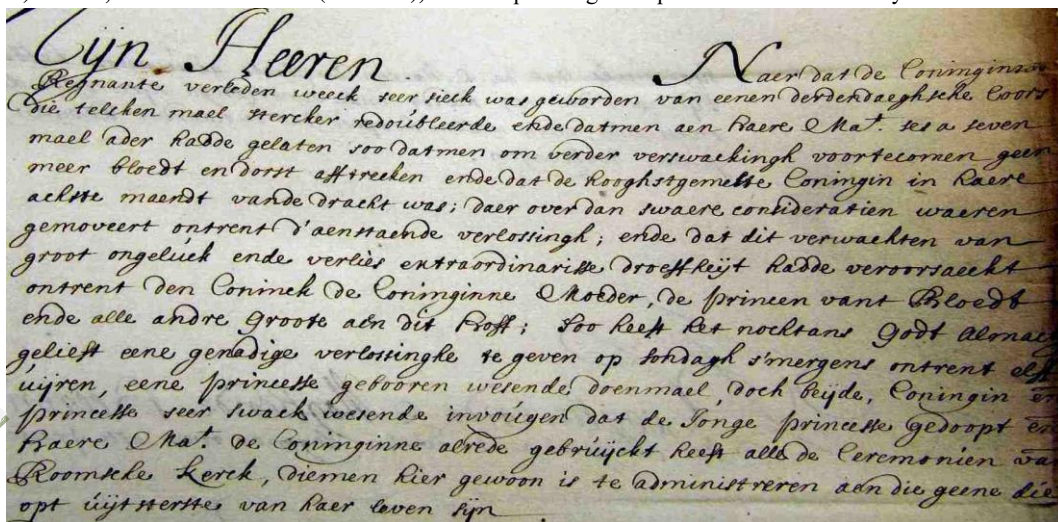 Mijn Heeren Naer dat de Coninginne
Regnante verleden weeck seer sieck was geworden van eenen derdendaeghsche Coors
die telcken mael stercker redoubleerde ende datmen aen haere Ma.t ses a seven
mael ader hadde gelaten soo datmen om verder verswackingh voortecomen geen
meer bloedt en dorst afftrecken ende dat de hooghstgemelte Coningin in haere
achste maendt vande dracht was; daer over dan swaere consideratien waeren
gemoveert ontrent d'aenstaende verlossingh; ende dat dit verwachten van
groot ongelück ende verlies extraordinarisse droeffheijt hadde veroorsaeckt
ontrent den Coninck de Coninginne Moeder, de princen vant Bloedt
ende alle andre Groote aen dit hoff; Soo heeft het nochtans Godt Almac
gelieft eene genadige verlossinghe te geven op Sondagh s'mergens ontrent elff
uijren, eene princesse gebooren wesende doenmael, doch beijde, Coningin en
princesse seer swack wesende invoúgen dat de Jonge princesse gedoopt en
haere Ma.t de Coninginne alrede gebruijckt heeft alle de Ceremonien van
Roomsche kerck, diemen hier gewoon is te administreren aen die geene die
opt úijtsterste van haer leven sijn